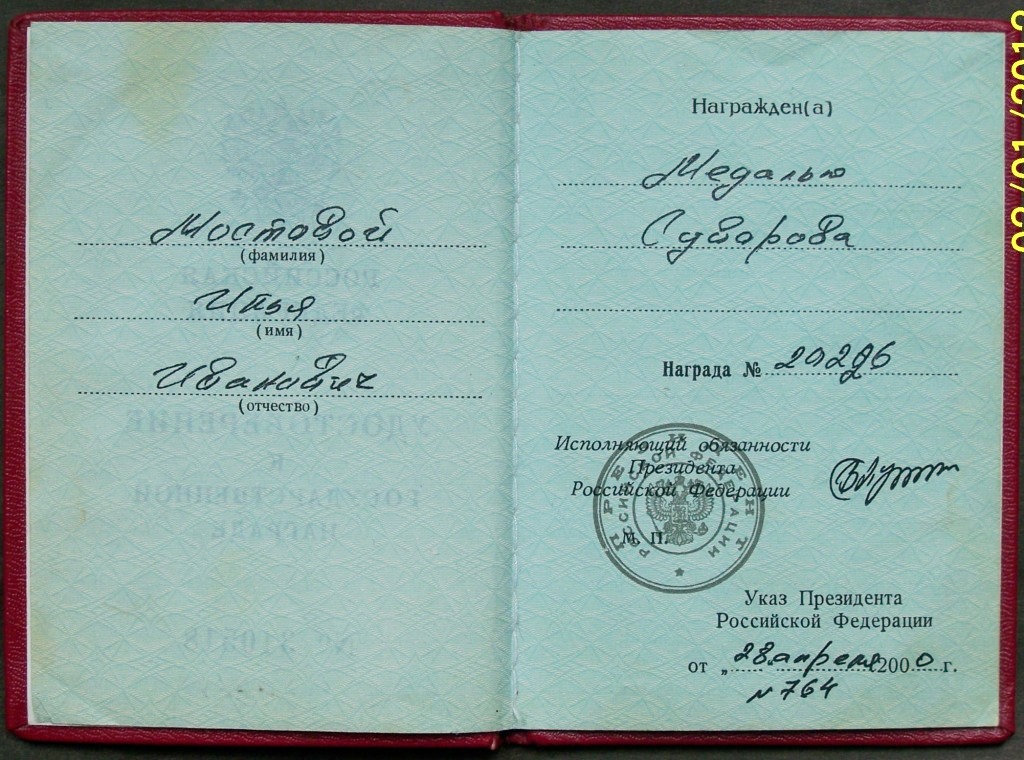 Мостовой
(фамилия)
Илья
(имя)
Иванович
(отчество)
Награжден(а)
Медалью
Суворова
Награда № 29296
Исполняющий обязанности
Президента
Российской Федерации
ПРЕЗИДЕНТ
РОССИЙСКОЙ ФЕДЕРАЦИИ
М. П.
Указ Президента
Российской Федерации
от „28 апреля 2000 г.
№ 764
02/01/2012